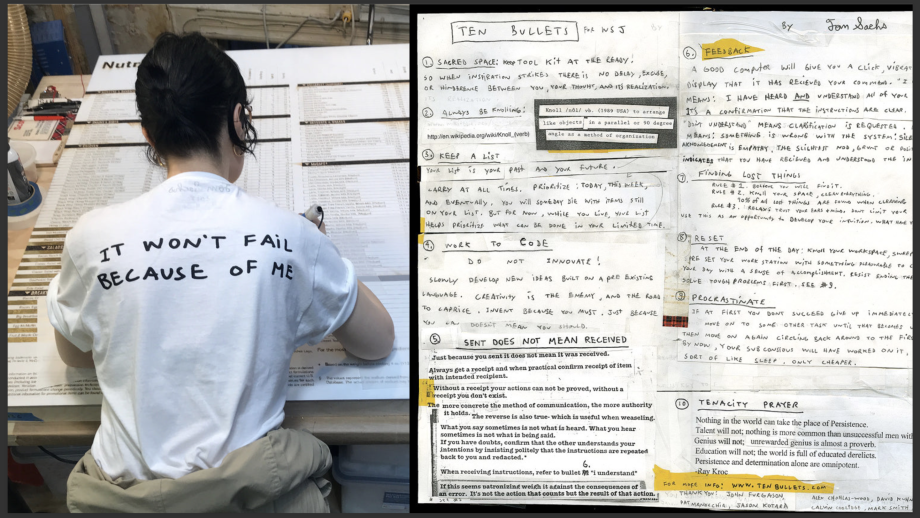 Nutr
IT WON'T FAIL
BECAUSE OF ME
TEN BULLETS FOR NSJ
BY Tom Sachs
1. SACRED SPACE: KEEP TOOL KIT AT THE READY!
SO WHEN INSPIRATION STRIKES THERE IS NO DELAY, EXCUSE,
OR HINDERENCE BETWEEN YOU, YOUR THOUGHT, AND ITS REALIZATION.
2. ALWAYS BE KNOLLING!
Knoll /nōl/ vb. (1989 USA) to arrange
like objects in a parallel or 90 degree
angle as a method of organization
http://en.wikipedia.org/wiki/Knoll_(verb)
3. KEEP A LIST
YOUR LIST IS YOUR PAST AND YOUR FUTURE.
CARRY AT ALL TIMES. PRIORITIZE: TODAY, THIS WEEK,
AND EVENT-ALLY. YOU WILL SOMEDAY DIE WITH ITEMS STILL
ON YOUR LIST. BUT FOR NOW, WHILE YOU LIVE, YOUR LIST
HELPS PRIORITIZE WHAT CAN BE DONE IN YOUR LIMITED TIME.
4. WORK TO CODE
DO NOT INNOVATE!
SLOWLY DEVELOP NEW IDEAS BUILT ON A PRE EXISTING
LANGUAGE. CREATIVITY IS THE ENEMY, AND THE ROAD
TO CAPRISE. INVENT BECAUSE YOU MUST, JUST BECAUSE
YOU CAN DOESN'T MEAN YOU SHOULD.
5 SENT DOES NOT MEAN RECEIVED
Just because you sent it does not mean it was received.
Always get a receipt and when practical confirm receipt of item
with intended recipient.
Without a receipt your actions can not be proved, without a
receipt you don't exist.
The more concrete the method of communication, the more authority
it holds.
The reverse is also true- which is useful when weaseling.
What you say sometimes is not what is heard. What you hear
sometimes is not what is being said.
If you have doubts, confirm that the other understands your
intentions by insisting politely that the instructions are repeated
back to you and redacted.*
6.
When receiving instructions, refer to bullet "i understand"
If this seems patronizing weigh it against the consequences of
an error. It's not the action that counts but the result of that action.
6. FEEDBACK
A GOOD COMPUTER WILL GIVE YOU A CLICK, VIBRAT
DISPLAY THAT IT HAS RECIEVED YOUR COMMAND. "I
MEANS: I HAVE HEARD AND UNDERSTAND ALL OF YOUR
IT'S A CONFIRMATION THAT THE INSTRUCTIONS ARE CLEAR.
UNDERSTAND" MEANS CLARIFICATION IS REQUESTED.
MEANS: SOMETHING IS WRONG WITH THE SYSTEM!
IS EMPATHY. THE SLIGHTEST NOD,
INDICATES THAT YOU HAVE RECIEVED AND UNDERSTOOD THE IN
7 FINDING LOST THINGS
RULE # 1.
RULE # 2. KNOLL YOUR SPACE, CLEAN EVERYTHING.
90% OF ALL LOST THINGS ARE FOUND WHEN CLEANING
RULE #3.
USE THIS AS AN OPPORTUNITY TO DEVELOP YOUR INTUITION.
8 RESET
AT THE END OF THE DAY: KNOLL YOUR WORKSPACE, SWEEP
PRE SET YOUR WORK STATION WITH SOMETHING
YOUR DAY WITH A SENSE OF ACCOMPLISHMENT. RESIST ENDING THE
SOLVE TOUGH PROBLEMS FIRST. SEE #9.
9 PROCRASTINATE
IF AT FIRST YOU DONT SUCCEED GIVE UP IMMEDIATE
MOVE ON TO SOME OTHER TASK UNTIL THAT BECOMES
THEN MOVE ON AGAIN CIRCLING BACK AROUND TO THE FIR
BY NOW, YOUR SUBCONSCIOUS WILL HAVE WORKED ON IT,
SORT OF LIKE SLEEP, ONLY CHEAPER.
10 TENACITY PRAYER
Nothing in the world can take the place of Persistence.
Talent will not; nothing is more common than unsuccessful men wit
Genius will not; unrewarded genius is almost a proverb.
Education will not; the world is full of educated derelicts.
Persistence and determination alone are omnipotent.
-Ray Kroc
FOR MORE INFO: WWW.TENBULLETS.COM
THANK YOU! JOHN FURGASON,
JASON KOTARA
MARK SMITH